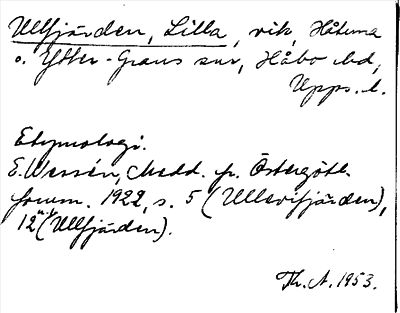 Ullfjärden, Lilla, vik, Håtuna
o. Ytter-Grans snr, Håbo hd,
Upps. l.
Etymologi.
E. Wessén, Medd. fr. Östergötl.
fornm. 1922, s. 5 (Ullevifjärden),
12 (Ullfjärden).
Th. A. 1953.